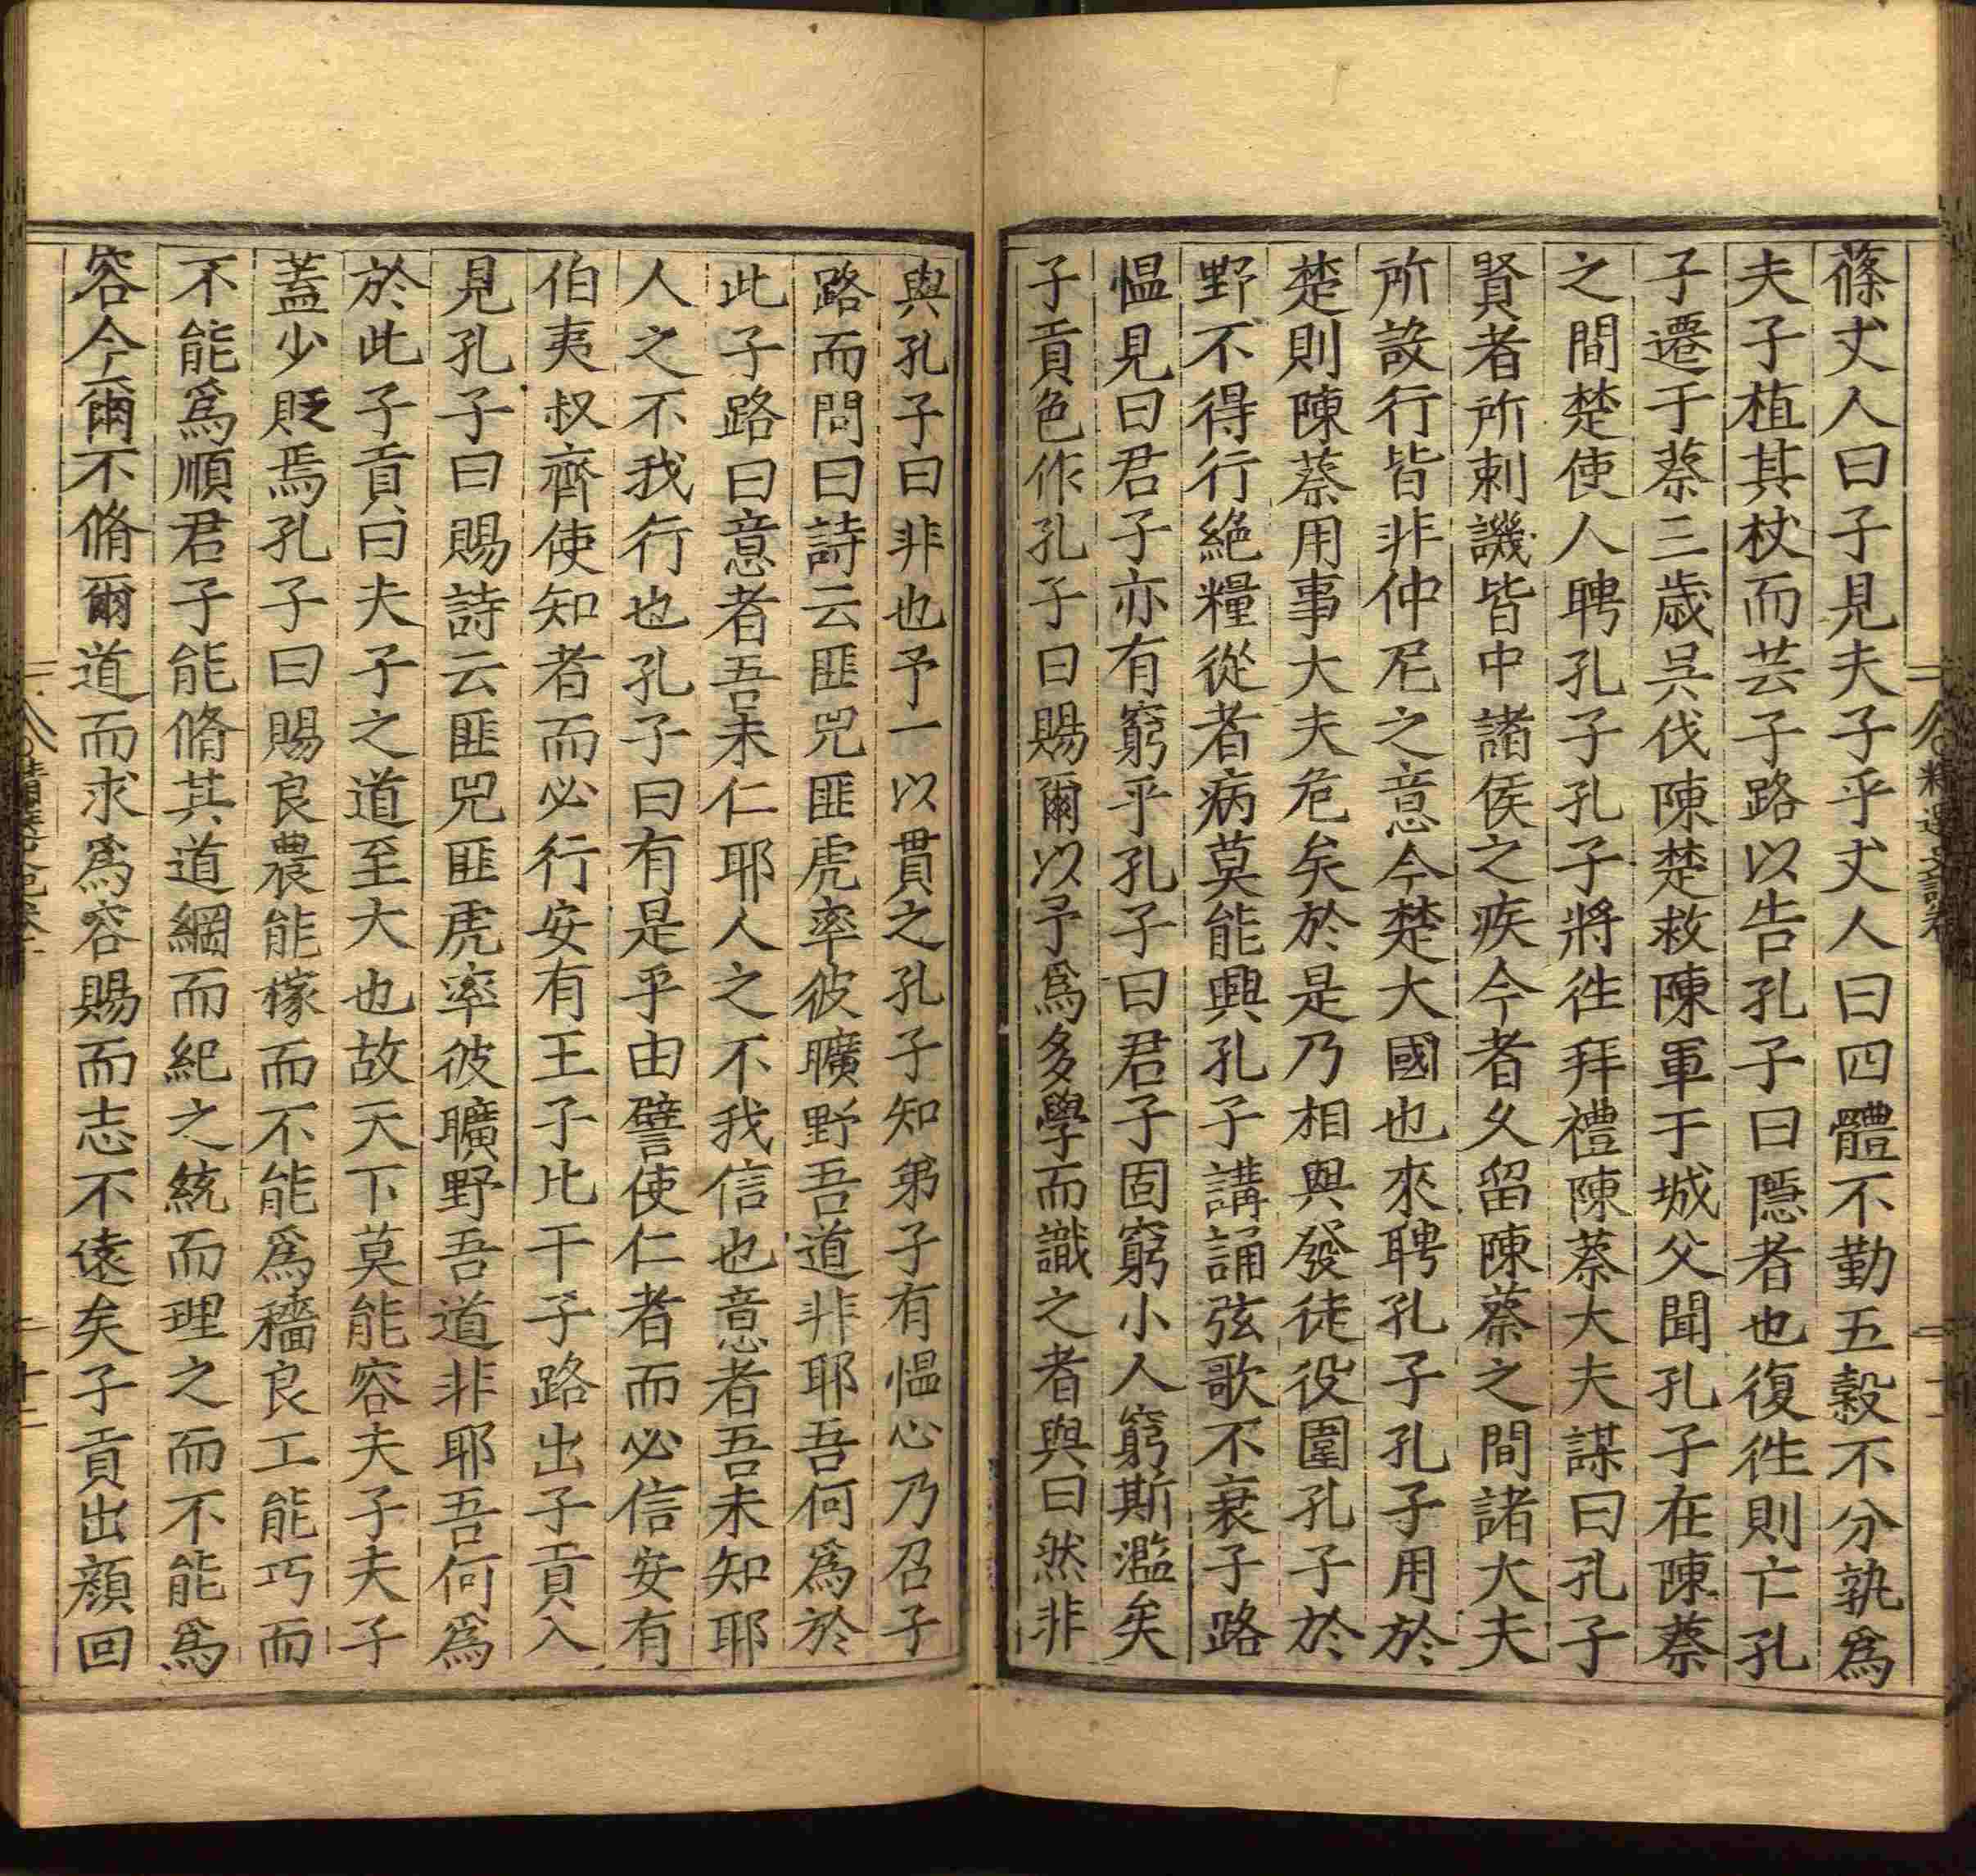 蓧丈人曰子見夫子乎丈人曰四體不勤五穀不分孰爲
夫子植其杖而芸子路以告孔子曰隱者也復徃則亡孔
子遷于蔡三歲吳伐陳楚救陳軍于城父聞孔子在陳蔡
之間楚使人聘孔子孔子將徃拜禮陳蔡大夫謀曰孔子
賢者所刺譏皆中諸侯之疾今者久留陳蔡之間諸大夫
所設行皆非仲尼之意今楚大國也來聘孔子孔子用於
楚則陳蔡用事大夫危矣於是乃相與發徒役圍孔子於
野不得行絶糧從者病莫能興孔子講誦弦歌不衰子路
慍見曰君子亦有窮乎孔子曰君子固窮小人窮斯濫矣
子貢色作孔子曰賜爾以予爲多學而識之者與曰然非
與孔子曰非也予一以貫之孔子知弟子有慍心乃召子
路而問曰詩云匪兕匪虎率彼曠野吾道非耶吾何爲於
此子路曰意者吾未仁耶人之不我信也意者吾未知耶
人之不我行也孔子曰有是乎由譬使仁者而必信安有
伯夷叔齊使知者而必行安有王子比干子路出子貢入
見孔子曰賜詩云匪兕匪虎率彼曠野吾道非耶吾何爲
於此子貢曰夫子之道至大也故天下莫能容夫子夫子
蓋少貶焉孔子曰賜良農能稼而不能爲穡良工能巧而
不能爲順君子能脩其道綱而紀之統而理之而不能爲
容今爾不脩爾道而求爲容賜而志不遠矣子貢出顔回